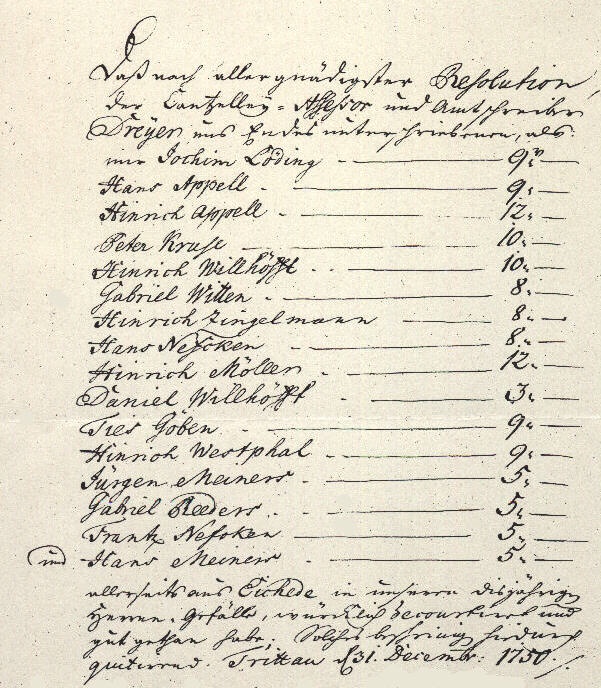 Daß nach allergnädigster Resolution,
der Cantzelley-Assessor und Amtschreiber
Dreyer uns Endes unterschriebenen, als:
mir Jochim Löding - 9.
Hans Appell - 9.
Hinrich Appell - 12.
Peter Kruse - 10.
Hinrich Willhöfft - 10.
Gabriel Witten - 8.
Hinrich Zingelmann - 8.
Hans Nescken - 8.
Hinrich Möller - 12.
Daniel Willhöfft - 3.
Ties Göben - 9.
Hinrich Westphal - 9.
Jürgen Meiners - 5.
Gabriel Reeders - 5.
Frantz Nescken - 5.
und Hans Meiners - 5.
allerseits aus Eichede in unseren disjährigen
Herren-Gefälle, würcklich decourtiret und
gut gethan habe; Solches bescheinige hiedurch
quitirend. Trittau d. 31. Decembr: 1750.